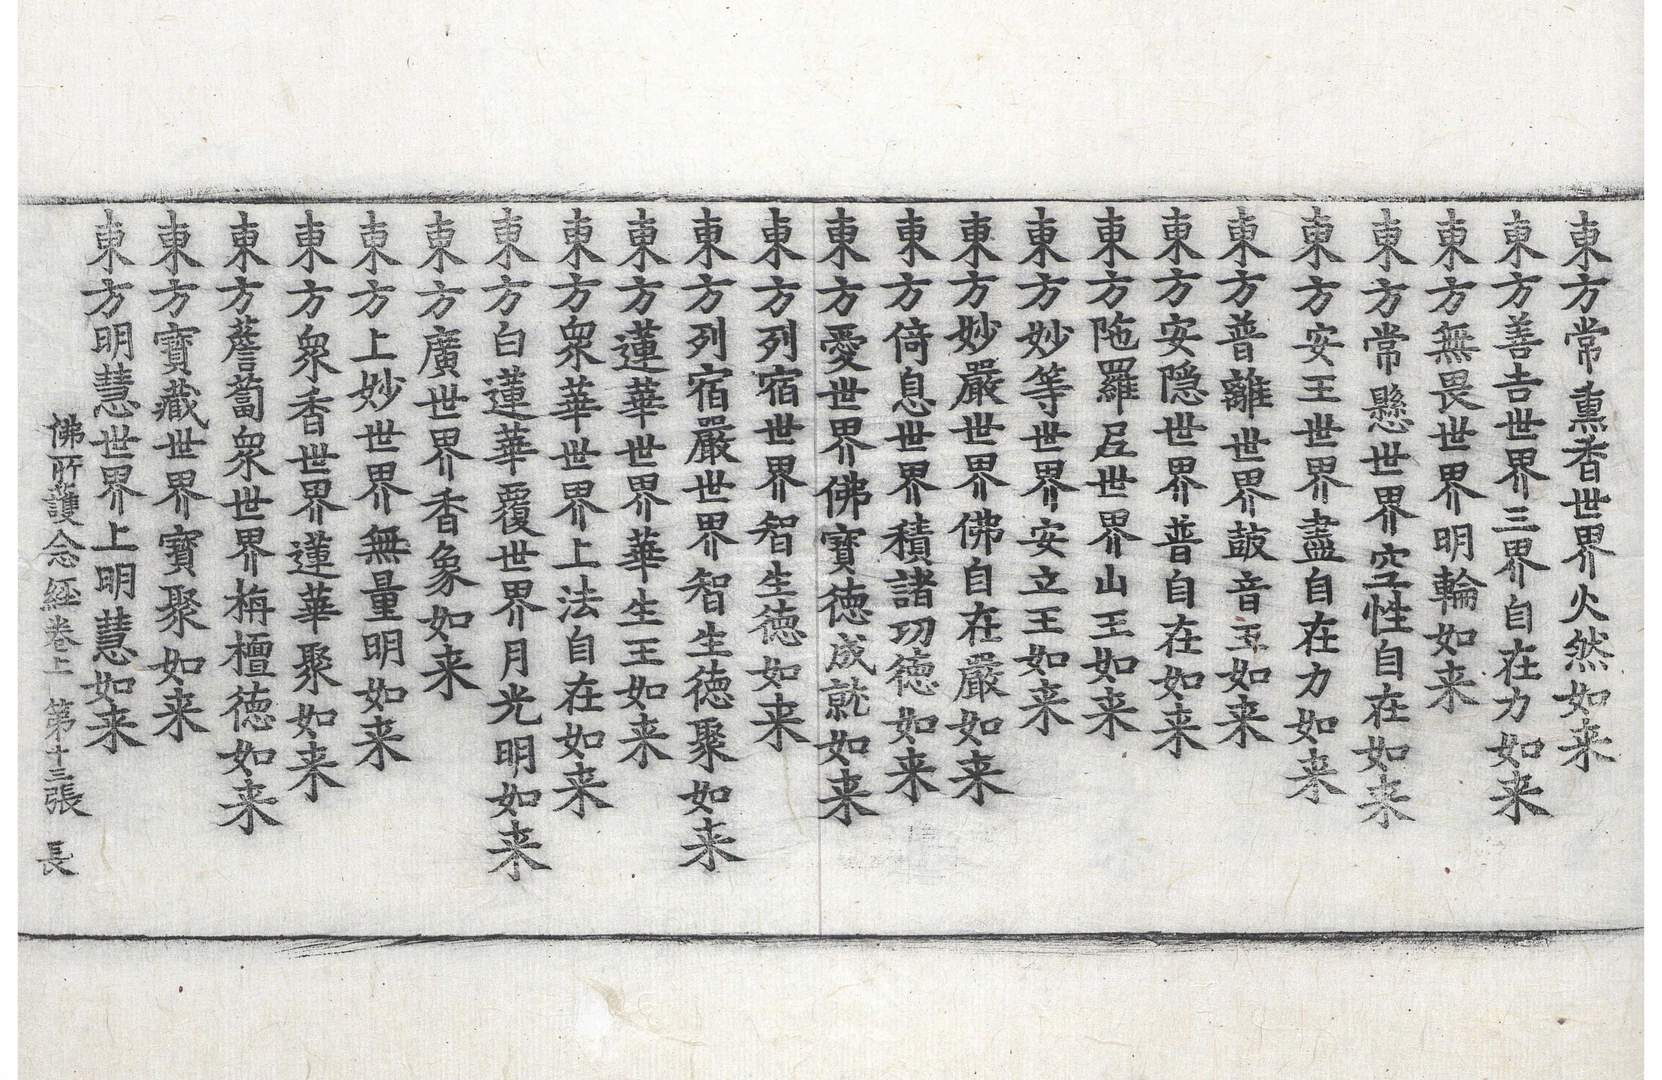 東方常熏香世界火然如来
東方善吉世界三界自在力如来
東方無畏世界明輪如来
東方常懸世界空性自在如来
東方安王世界盡自在力如来
東方普離世界皷音王如来
東方安隠世界普自在如来
東方陁羅𡰱世界山王如来
東方妙等世界安立王如来
東方妙嚴世界佛自在嚴如来
東方倚息世界積諸功德如来
東方愛世界佛寳德成就如来
東方列宿世界智生德如来
東方列宿嚴世界智生德聚如来
東方蓮華世界華生王如来
東方衆華世界上法自在如来
東方白蓮華覆世界月光明如来
東方廣世界香象如来
東方上妙世界無量明如来
東方衆香世界蓮華聚如来
東方薝蔔衆世界栴檀德如来
東方寳藏世界寳聚如来
東方明慧世界上明慧如来
佛所護念経巻上 第十三張 長